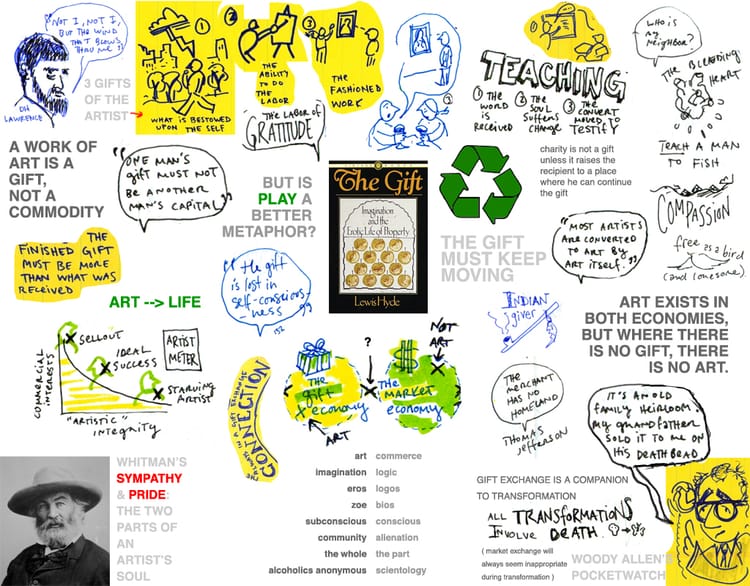 "NOT I, NOT I,
BUT THE WIND
THAT BLOWS
THRU ME"
DH
LAWRENCE
3 GIFTS
OF THE
ARTIST
1
WHAT IS BESTOWED
UPON THE SELF
2
THE
ABILITY
TO DO
THE
LABOR
3
THE
FASHIONED
WORK
THE LABOR OF
GRATITUDE
TEACHING
1 THE
WORD
IS
RECEIVED
2 THE
SOUL
SUFFERS
CHANGE
3 THE
CONVERT
MOVED TO
TESTIFY
WHO IS
MY
NEIGHBOR?
THE BLEEDING
HEART
TEACH A MAN
TO FISH
A WORK OF
ART IS A
GIFT,
NOT A
COMMODITY
"ONE MAN'S
GIFT MUST NOT
BE ANOTHER
MAN'S CAPITAL"
BUT IS
PLAY A
BETTER
METAPHOR?
The Gift
Imagination
and the
Erotic Life of Property
Lewis Hyde
charity is not a gift
unless it raises the
recipient to a place
where he can continue
the gift
THE GIFT
MUST KEEP
MOVING
"MOST ARTISTS
ARE CONVERTED
TO ART BY
ART ITSELF."
COMPASSION
free as a bird
(and lonesome)
THE
FINISHED GIFT
MUST BE MORE
THAN WHAT WAS
RECEIVED
"the gift
is lost in
self-conscious-
ness"
152
ART --> LIFE
INDIAN
giver
ART EXISTS IN
BOTH ECONOMIES,
BUT WHERE THERE
IS NO GIFT, THERE
IS NO ART.
COMMERCIAL
INTERESTS
SELLOUT
IDEAL
SUCCESS
STARVING
ARTIST
ARTIST
METER
"ARTISTIC"
INTEGRITY
CONNECTION
The
gift
economy
ART
?
$
The
MARKET
economy
NOT
ART
THE
MERCHANT
HAS NO
HOMELAND
THOMAS
JEFFERSON
IT'S AN OLD
FAMILY HEIRLOOM.
MY GRANDFATHER
SOLD IT TO ME ON
HIS DEATH BEAD
WHITMAN'S
SYMPATHY
& PRIDE:
THE TWO
PARTS OF
AN
ARTIST'S
SOUL
art commerce
imagination logic
eros logos
zoe bios
subconscious conscious
community alienation
the whole the part
alcoholics anonymous scientology
GIFT EXCHANGE IS A COMPANION
TO TRANSFORMATION
ALL TRANSFORMATIONS
INVOLVE DEATH
( market exchange will
always seem inappropriate
during transformation )
WOODY ALLEN'S
POCKETWATCH